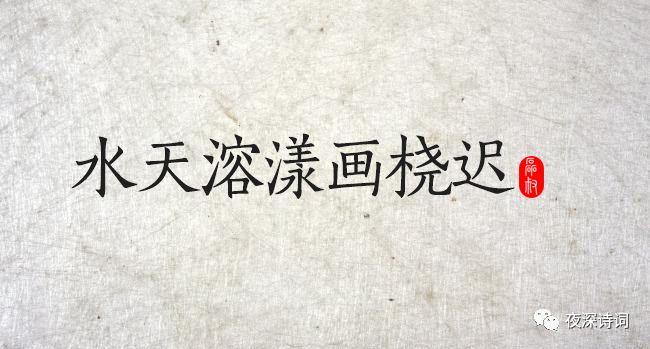 水天溶漾画桡迟
磊叔
夜深诗词